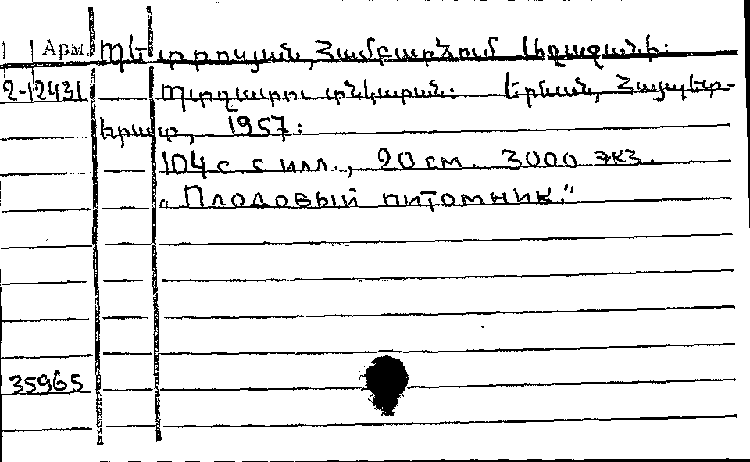 Арм. Պետրոսյան, Համբարձում Ղազարի:
2-12431 Պտղատու տնկարան: Երևան, Հայպետ-
հրատ, 1957:
104 с. с илл., 20 см. 3000 экз.
„Плодовый питомник."
35965